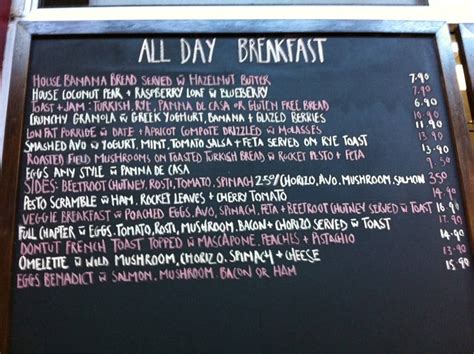 ALL DAY BREAKFAST
HOUSE BANANA BREAD SERVED W HAZELNUT BUTTER 7.90
HOUSE COCONUT PEAR + RASPBERRY LOAF W BLUEBERRY 7.90
TOAST + JAM: TURKISH, RYE, PANNA DE CASA OR GLUTEN FREE BREAD 6.90
CRUNCHY GRANOLA W GREEK YOGHURT, BANANA + GLAZED BERRIES 11.90
LOW FAT PORRIDGE W DATE + APRICOT COMPOTE DRIZZLED W MOLASSES 10.90
SMASHED AVO W YOGURT, MINT, TOMATO SALSA + FETA SERVED ON RYE TOAST
ROASTED FIELD MUSHROOMS ON TOASTED TURKISH BREAD W ROCKET PESTO + FETA
EGGS ANY STYLE W PANNA DE CASA
SIDES: BEETROOT CHUTNEY, ROSTI, TOMATO, SPINACH 2.50 / CHORIZO, AVO, MUSHROOM, SALMON 3.50
PESTO SCRAMBLE W HAM, ROCKET LEAVES + CHERRY TOMATO
VEGGIE BREAKFAST W POACHED EGGS, AVO, SPINACH, FETA + BEETROOT CHUTNEY SERVED W TOAST
FULL CHAPTER W EGGS, TOMATO, ROSTI, MUSHROOM, BACON + CHORIZO SERVED W TOAST
DONTUT FRENCH TOAST TOPPED W MASCAPONE, PEACHES + PISTACHIO
OMELETTE W WILD MUSHROOM, CHORIZO, SPINACH + CHEESE
EGGS BENADICT W SALMON, MUSHROOM BACON OR HAM 15.90